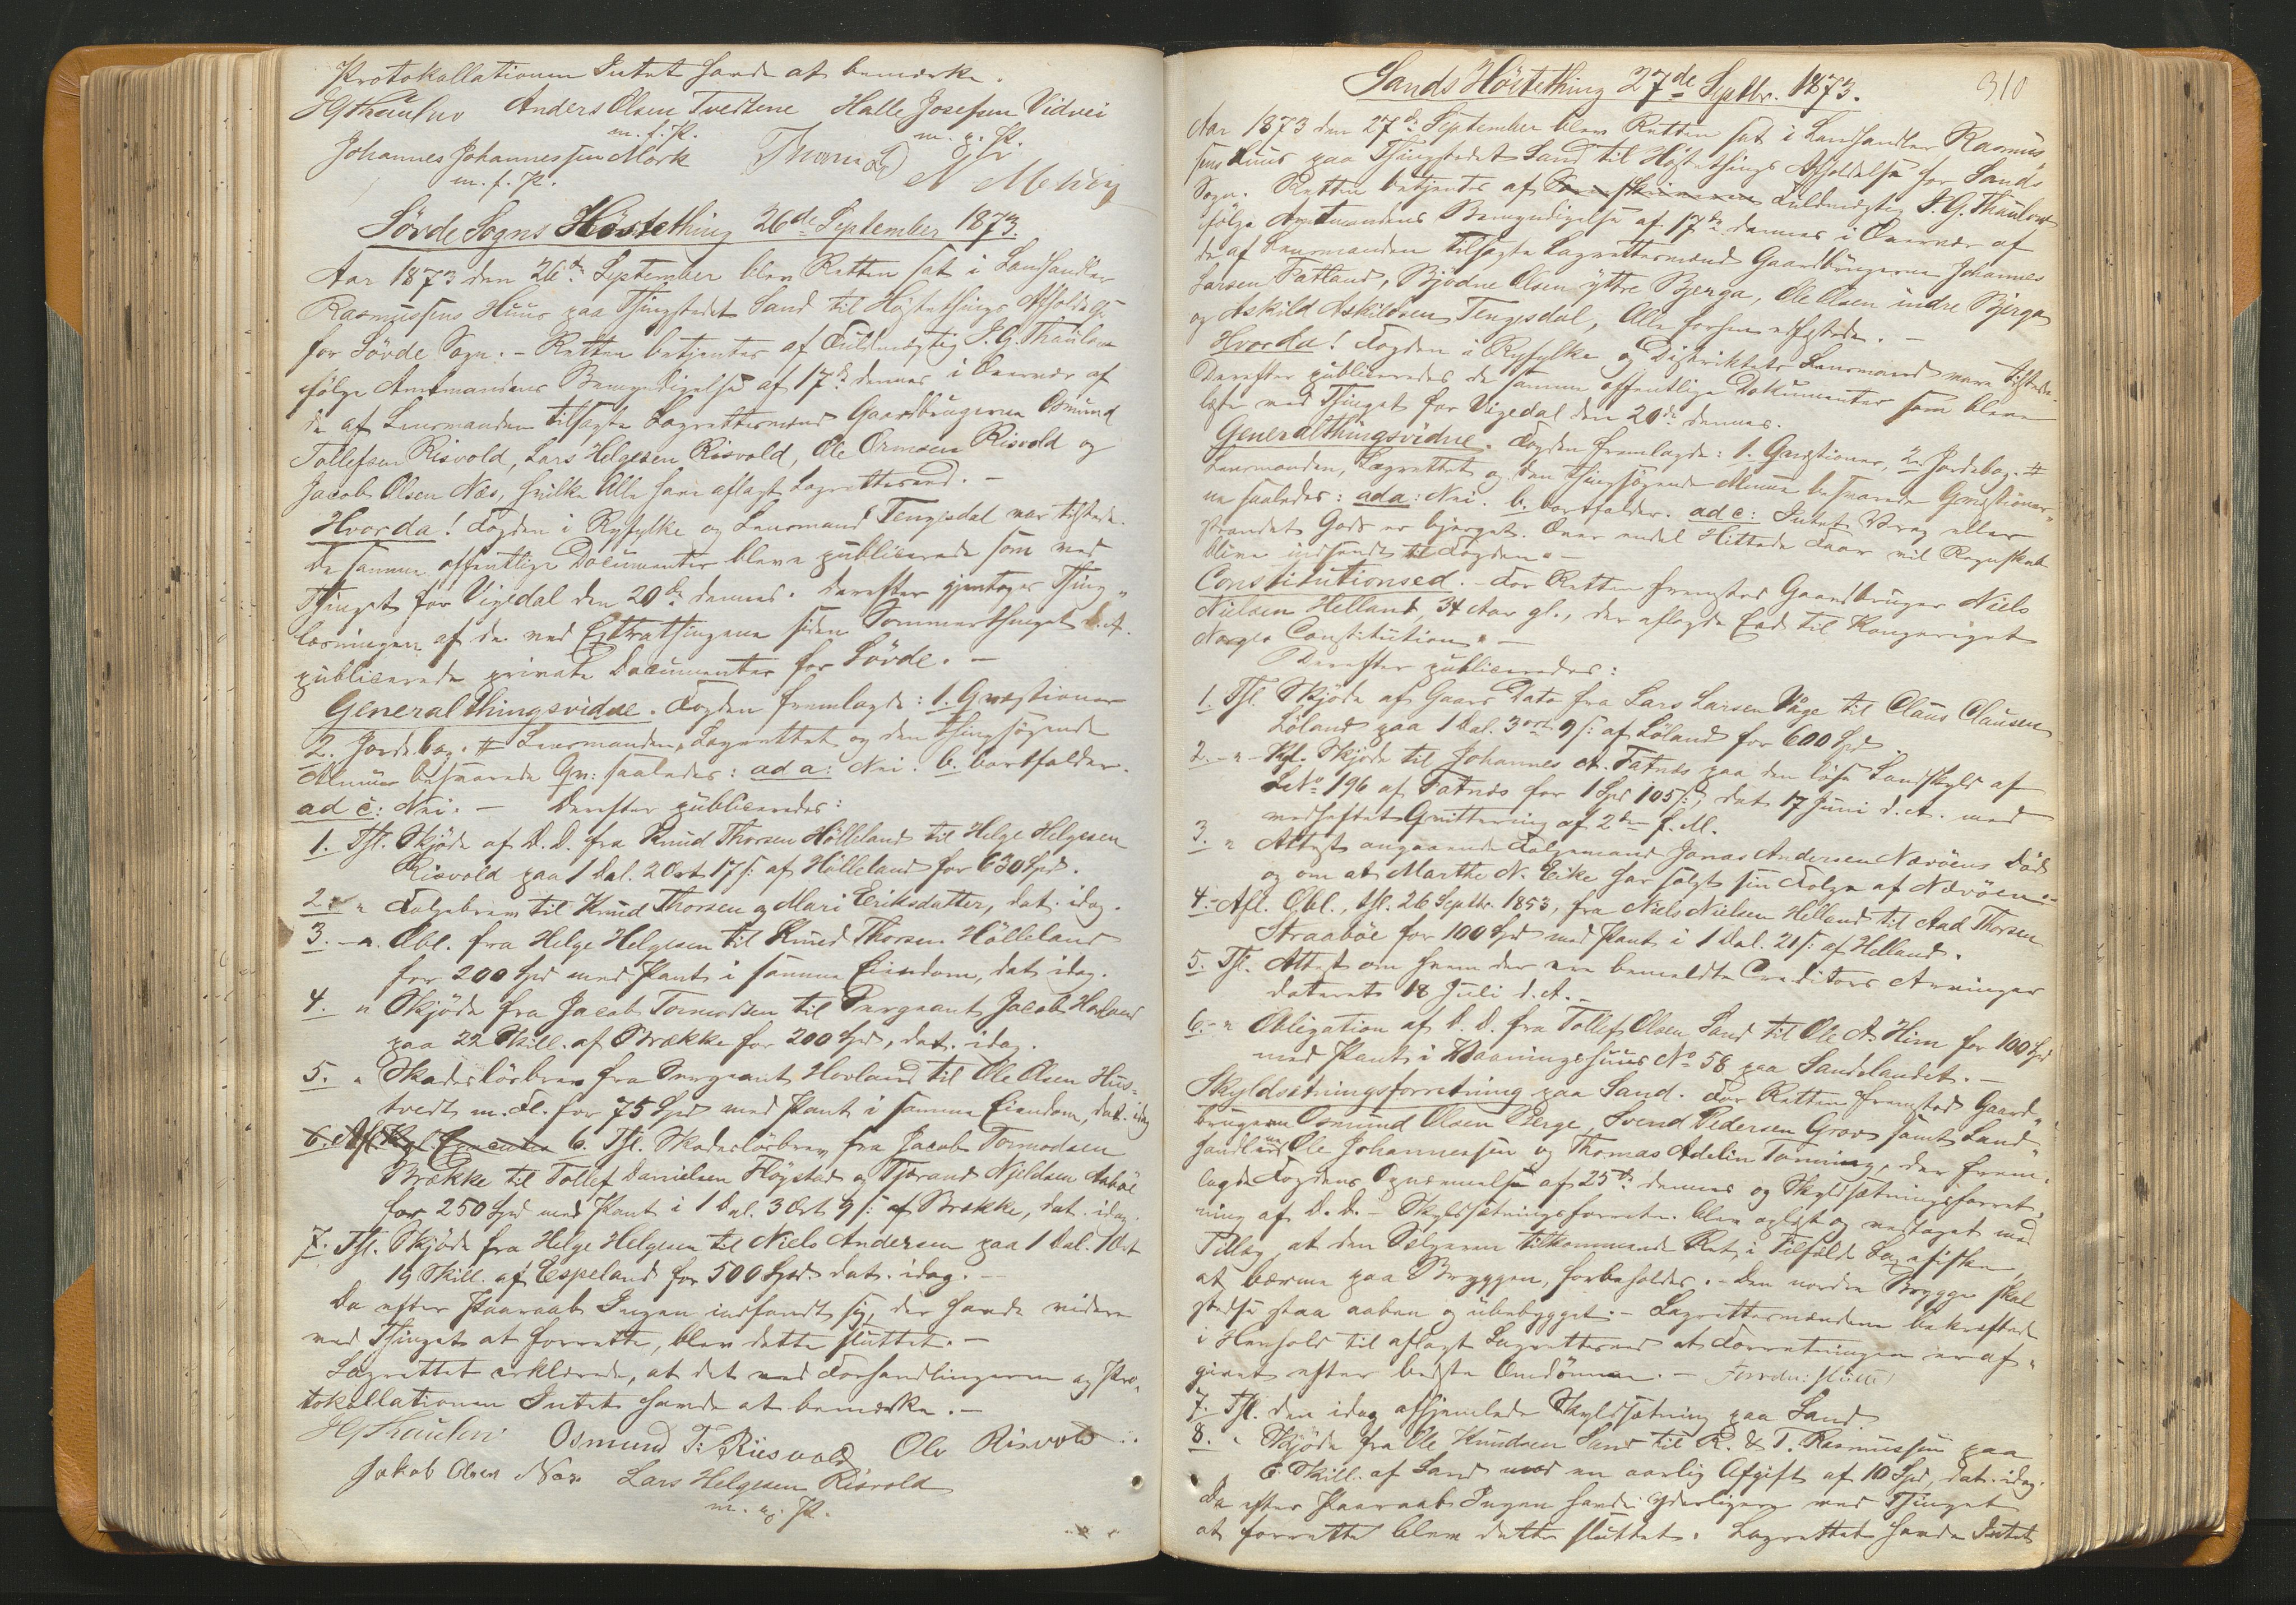 Protokollationen Intet havde at bemærke.
Anders Olsen Tvedtene Halle Josefsen Vidvei
m. f. P. m. p. P.
Johannes Johannessen Mørk
m. f. P.
Søvde Sogns Høstething 26de September 1873.
Aar 1873 den 26de September blev Retten sat i Landhandler
Rasmussens Huus paa Thingstedet Sand til Høstethings Afholdelse
for Søvde Sogn. - Retten betjentes af Fuldmægtig J. G. Thaulow
ifølge Amtmandens Bemyndigelse af 17de dennes i Overvær af
de af Lensmanden tilsagte Lagrettemænd Gaardbrugerne Osmund
Tollefsen Risvold, Lars Helgesen Risvold, Ole Ormsen Risvold og
Jacob Olsen Næs, hvilke Alle have aflagt Lagretteeed. -
Hvorda! Fogden i Ryfylke og Lensmand Tengesdal var tilstede.
De samme offentlige Documenter bleve publicerede som ved
Thinget for Vigedal den 20de dennes. Derefter gjentoges Thing„
læsningen af de ved Extrathingene siden Sommerthinget d. A.
publicerede private Documenter for Søvde. -
Generalthingsvidne. Fogden fremlagde: 1. Qvæstioner
2. Jordebog. # Lensmanden, Lagrettet og den thingsøgende
Almue besvarede Qv: saaledes: ad a: Nei. b. bortfalder.
ad c: Nei. - Derefter publiceredes:
1. Thl. Skjøde af D. D. fra Knud Thorsen Hølleland til Helge Helgesen
Risvold paa 1 Dal. 2 Ort 17 s: af Hølleland for 630 Spd.
2. - " Folgebrev til Knud Thorsen og Mari Eriksdatter, dat. idag.
3. - ". Obl. fra Helge Helgesen til Knud Thorsen Hølleland
for 200 Spd med Pant i samme Eiendom, dat. idag.
4. " Skjøde fra Jacob Tormodsen til Sergeant Jacob Hovland
paa 22 Skill. af Brække for 200 Spd, dat. idag.
5. " Skadesløsbrev fra Sergeant Hovland til Ole Olsen Hus-
tvedt m. Fl. for 75 Spd med Pant i samme Eiendom, dat. idag
6. Thl. Skadesløsbrev fra Jacob Tormodsen
Brække til Tollef Danielsen Høgstad og Tjerand Njeldsen Aabøe
for 250 Spd med Pant i 1 Dal. 3 Ort 9 s: af Brække, dat. idag.
7. Thl. Skjøde fra Helge Helgesen til Niels Andersen paa 1 Dal. 1 Ort
19 Skill. af Espeland for 500 Spd. dat. idag. -
Da efter Paaraab Ingen indfandt sig, der havde videre
ved Thinget at forrette, blev dette sluttet. -
Lagrettet erklærede, at det ved Forhandlingerne og Pro„
tokollationen Intet havde at bemærke. -
Osmund T: Riesvold Olv Risvold
Jakob Olsen Næs Lars Helgesen Risvold
m. p. P.
310
Sands Høstething 27de Septbr. 1873.
Aar 1873 den 27de September blev Retten sat i Landhandler Rasmus
sens Huus paa Thingstedet Sand til Høstethings Afholdelse for Sands
Sogn. Retten betjentes af Fuldmægtig J. G. Thaulow
ifølge Amtmandens Bemyndigelse af 17de dennes i Overvær af
de af Lensmanden tilsagte Lagrettemænd Gaardbrugerne Johannes
Larsen Tatland, Bjødne Olsen yttre Bjerga, Ole Olsen indre Bjerga
og Askild Askildsen Tengesdal, Alle forhen edfæstede. -
Hvorda! Fogden i Ryfylke og Distriktets Lensmand vare tilstede.
Derefter publiceredes de samme offentlige Dokumenter som bleve
læste ved Thinget for Vigedal den 20de dennes.
Generalthingsvidne. Fogden fremlagde: 1. Qvæstioner, 2. Jordebog. #
Lensmanden, Lagrettet og den thingsøgende Almue besvarede Qvæstioner„
ne saaledes: ad a: Nei. b. bortfalder. ad c: Intet Vrag eller
strandet Gods er bjerget. Over endel Hittede Faar vil Regnskab
blive indsendt til Fogden. -
Constitutionsed. - For Retten fremstod Gaardbruger Niels
Nielsen Helland, 34 Aar gl., der aflagde Eed til Kongeriget
Norges Constitution. -
Derefter publiceredes:
1. Thl. Skjøde af Gaars Dato fra Lars Larsen Våge til Claus Clausen
Løland paa 1 Dal. 3 ort 9 s: af Løland for 600 Spd.
2. - " - Kgl. Skjøde til Johannes A. Fatnæs paa den løse Landskyld af
LNo 196 af Fatnæs for 1 Spd 105 s:, dat. 17 Juni d. A. med
vedheftet Qvittering af 2den f. M.
3. " Attest angaaende Folgemand Jonas Andersen Nærøens Død
og om at Marthe N. Eike har solgt sin Folge af Nærøen. -
4. - Afl. Obl., thl. 26 Septbr. 1853, fra Niels Nielsen Helland til Aad Thorsen
Straabøe for 100 Spd med Pant i 1 Dal. 21 s: af Helland.
5. Thl. Attest om hvem der ere bemeldte Creditors Arvinger
dateret 18 Juli d. A. -
6. - " Obligation af D. D. fra Tollef Olsen Sand til Ole A. Hiim for 100 Spd
med Pant i Vaaningshuus No 58 paa Sandslandet. -
Skyldsætningsforretning paa Sand. For Retten fremstod Gaard„
brugerne Osmund Olsen Berge, Svend Pedersen Grov samt Land„
handlerne Ole Johannessen og Thomas Adelin Tanning, der frem„
lagde Fogdens Opnævnelse af 25de dennes og Skyldsætningsforret„
ning af D. D. - Skyldsætningsforretn. blev oplæst og vedtaget med
Tillæg, at den Sælgeren tilkommende Ret, i Tilfælde Laxefiske,
at bærme paa Bryggen, forbeholdes. - Den nordre Brygge skal
stedse staa aaben og ubebygget. - Lagrettemændene bekræftede
i Henhold til aflagt Lagretteeed at Forretningen er af„
givet efter bedste Omdømme. -
7. Thl. den idag afhjemlede Skyldsætning paa Sand
8. " Skjøde fra Ole Knudsen Sand til R. & T. Rasmussen paa
6 Skill. af Sand mod en aarlig Afgift af 10 Spd, dat. idag.
Da efter Paaraab Ingen havde yderligere ved Thinget
at forrette blev dette sluttet. Lagrettet havde Intet